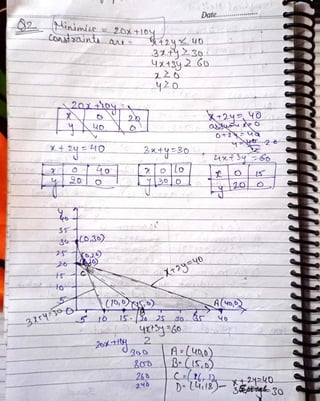 Date
Q2. Minimise = 20x+10y
Constraints are = x+2y ≤ 40
3x+y ≥ 30
4x+3y ≥ 60
x ≥ 0
y ≥ 0
20x+10y =
x 0 20
y 40 0
x+2y = 40
0+2y = 40
x+2y = 40
3x+y = 30
4x+3y = 60
x 0 40
y 20 0
x 0 10
y 30 0
x 0 15
y 20 0
40
35
30 (0,30)
25
20
15
10
5
x+2y=40
(10,0) (15,0) A(40,0)
5 10 15 30 35 40
3x+y=30
4x+3y=60
20x+10y Z
800 A = (40,0)
300 B = (15,0)
260 C =
240 D = (4,18)
x+2y=40
30